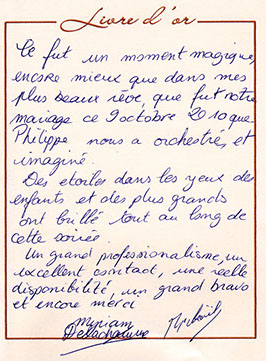 Livre d'or
Ce fut un moment magique,
encore mieux que dans mes
plus beaux rêve, que fut notre
mariage ce 9 octobre 2010 que
Philippe nous a orchestré et
imaginé.
Des etoiles dans les yeux des
enfants et des plus grands
ont brillé tout au long de
cette soirée.
Un grand professionalisme, un
excellent contact, une réelle
disponibilité, un grand bravo
et encore merci
Myriam